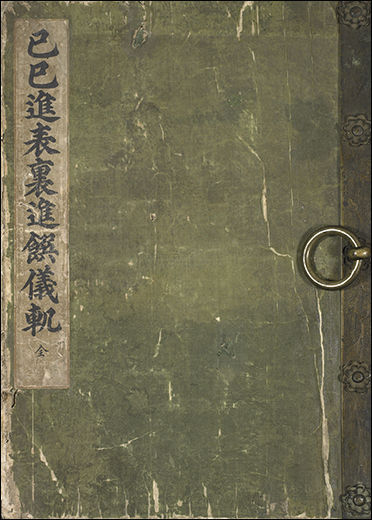 己巳進表裏進饌儀軌 全